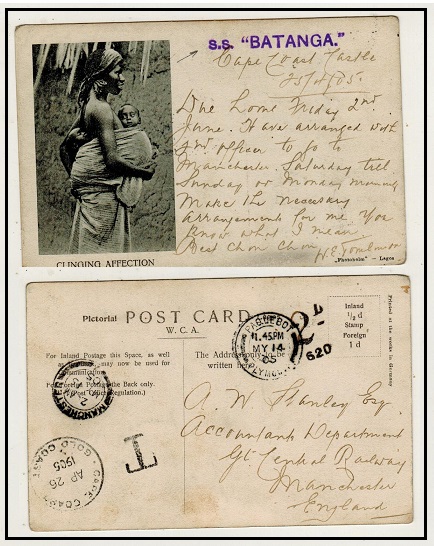 S.S. "BATANGA."
Cape Coast Castle
25/4/05.
Due home Friday 2nd
June. Have arranged with
2nd officer to go to
Manchester. Saturday till
Sunday or Monday morning
Make the necessary
arrangements for me. You
know what I mean.
Best Chon Chon
H.E. Tomlinson
CLINGING AFFECTION
"Photoholm" — Lagos
Pictorial POST CARD
W. C. A.
For Inland Postage this Space, as well
as may now be used for
Communication
For Foreign Postage the Back only.
(Post Office Regulation.)
The Address only to be
written here.
PAQUEBOT
1.45PM
MY 14
05
PLYMOUTH
2D
620
Inland
½ d
Stamp
Foreign
1 d
Printed at the works in Germany
MANCHESTER
T
CAPE COAST
AP 26
1905
GOLD COAST
A. W. Stanley Esq
Accountants Department
Gt Central Railway
Manchester
England